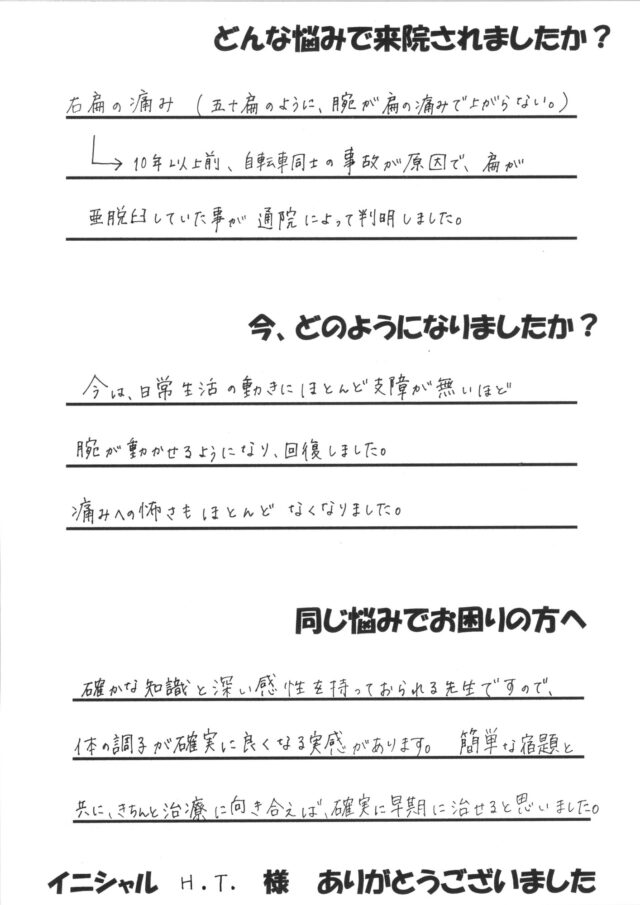 どんな悩みで来院されましたか？
右肩の痛み （五十肩のように、腕が肩の痛みで上がらない。）
→ 10年以上前、自転車同士の事故が原因で、肩が
亜脱臼していた事が通院によって判明しました。
今、どのようになりましたか？
今は、日常生活の動きにほとんど支障が無いほど
腕が動かせるようになり、回復しました。
痛みへの怖さもほとんどなくなりました。
同じ悩みでお困りの方へ
確かな知識と深い感性を持っておられる先生ですので、
体の調子が確実に良くなる実感があります。 簡単な宿題と
共に、きちんと治療に向き合えば、確実に早期に治せると思いました。
イニシャル H.T. 様 ありがとうございました